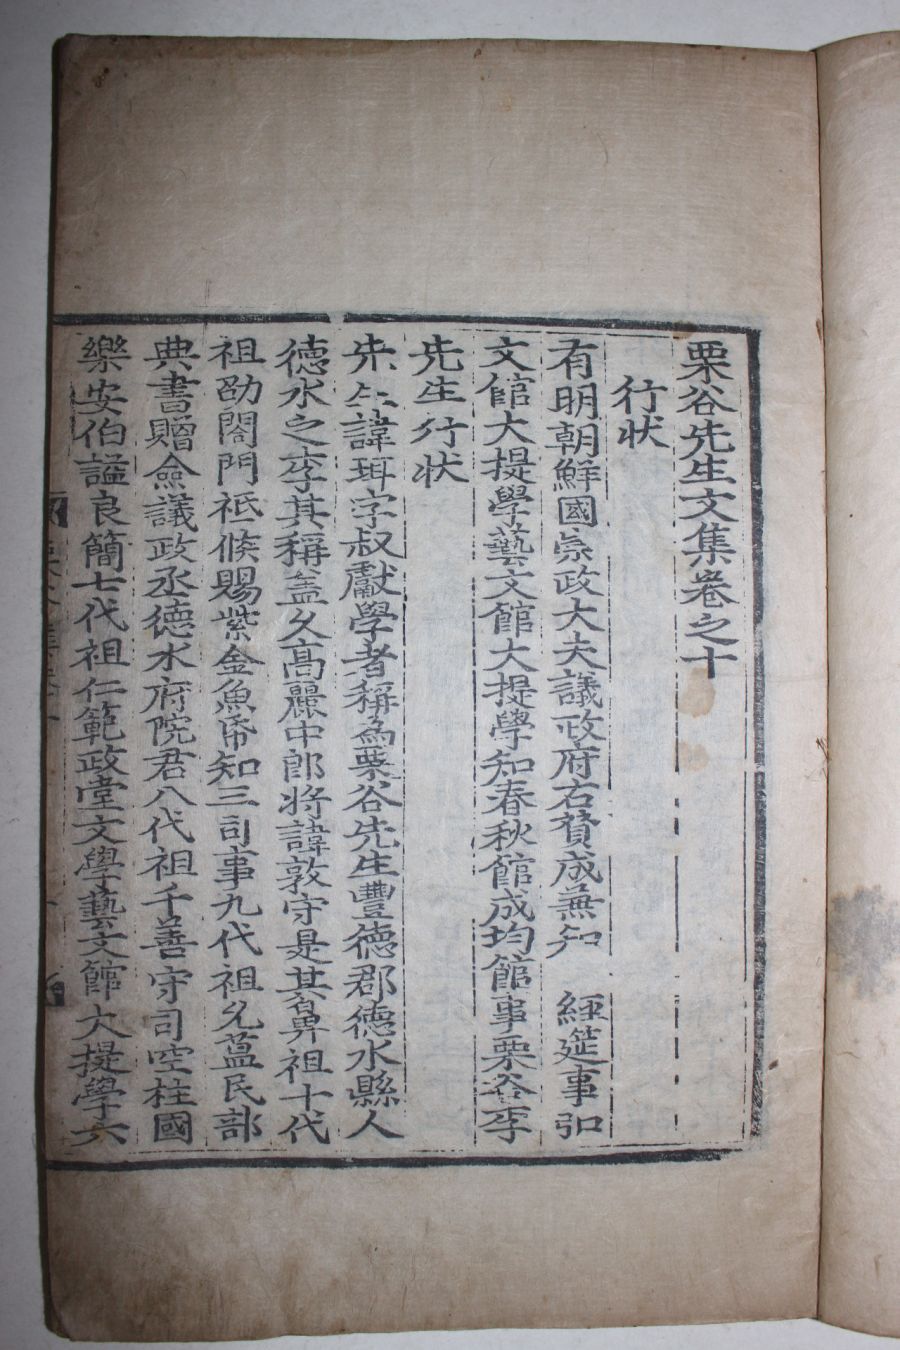 栗谷先生文集卷之十
行状
有明朝鮮國崇政大夫議政府右贊成兼知 經筵事弘
文館大提學藝文館大提學知春秋館成均館事栗谷李
先生行状
先生諱珥字叔獻學者稱爲栗谷先生豐德郡德水縣人
德水之李其稱盖久高麗中郎將諱敦守是其鼻祖十代
祖劭閤門祗候賜紫金魚帒知三司事九代祖允蒕民部
典書贈僉議政丞德水府院君八代祖千善守司空柱國
樂安伯謚良簡七代祖仁範政堂文學藝文館大提學六